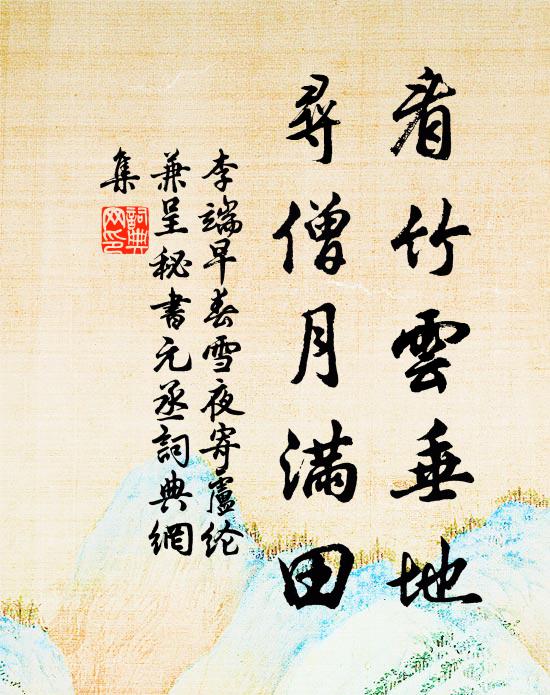 看竹雲垂地
尋僧月满田
李端早春雪夜寄盧纶
兼呈秘書元丞詞典網
集
詞典
网印